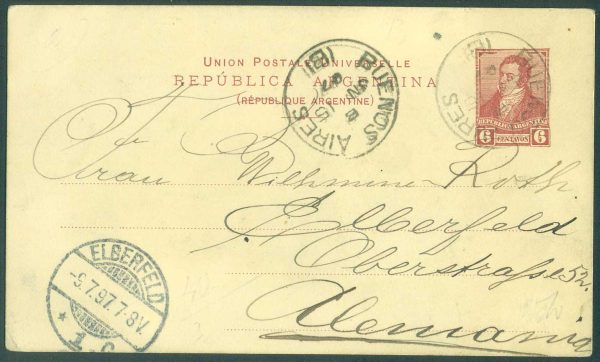 UNION POSTALE UNIVERSELLE
REPÚBLICA ARGENTINA
(RÉPUBLIQUE ARGENTINE)
BUENOS AIRES
BUENOS AIRES
REPUBLICA ARGENTINA
6 CENTAVOS 6
Frau Wilhmine Roth
Elberfeld
Oberstrasse 52.
Alemania
ELBERFELD
-9.7.97.7-8V.
* 1